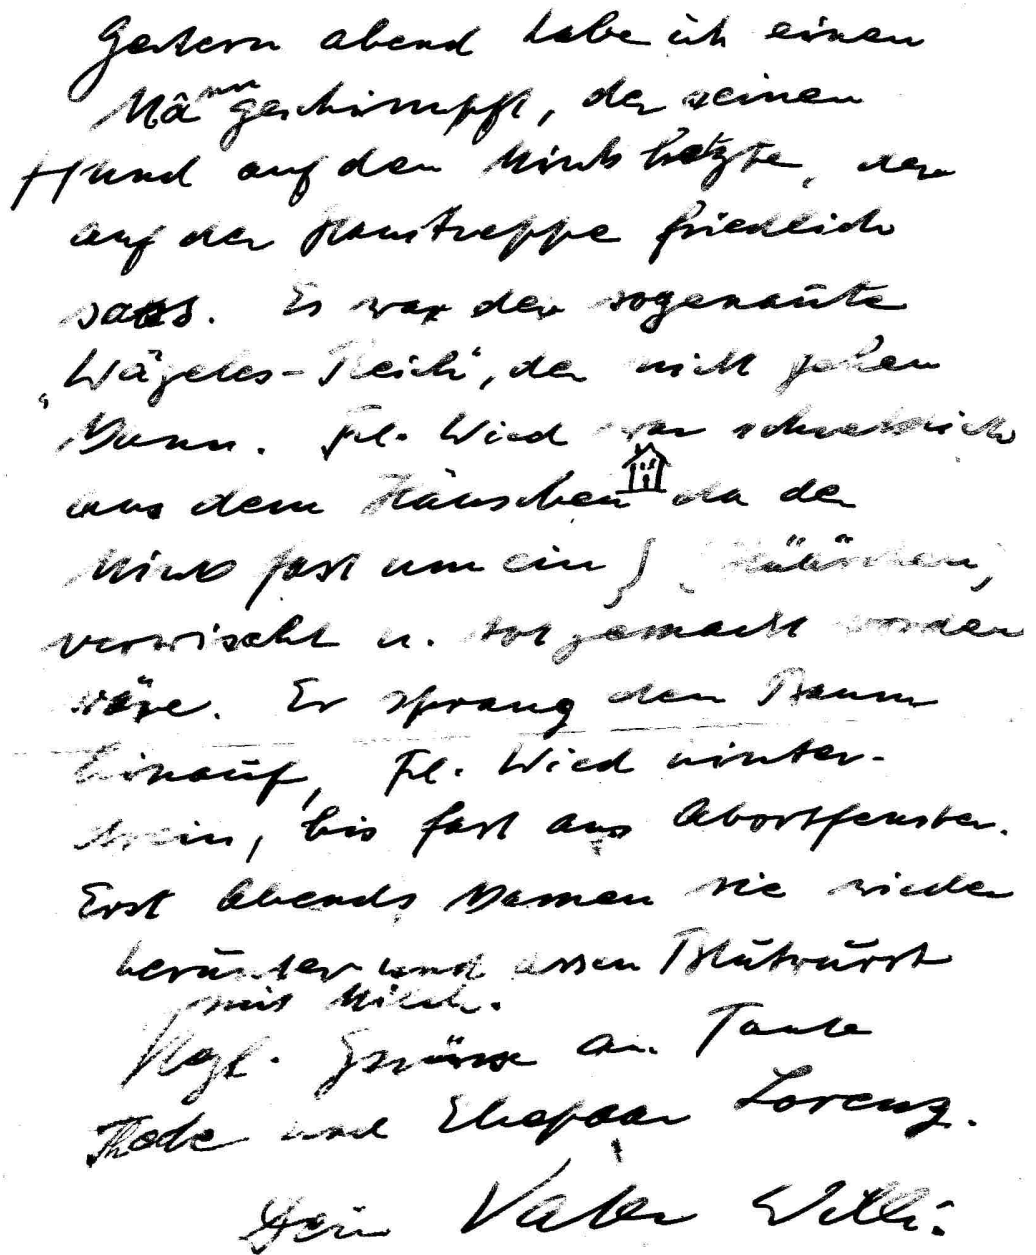 Gestern abend habe ich einen
Mann geschimpft, der seinen
Hund auf den Minks hetzte, der
auf der Haustreppe friedlich
sass. Es war der sogenannte
„Wägeles-Reich", der nicht gehen
kann. Frl. Wied war schrecklich
aus dem Häuschen da der
Minks fast um ein } (Häärchen)
verwischt u. tot gemacht worden
wäre. Er sprang den Baum
hinauf, Frl. Wied hinter-
drein, bis fast ans Abortfenster.
Erst Abends kamen sie wieder
herunter und assen Blutwurst
mit Milch.
Hzl. Grüsse an Tante
Thede und Ehepaar Lorenz.
Dein Vater Willi.